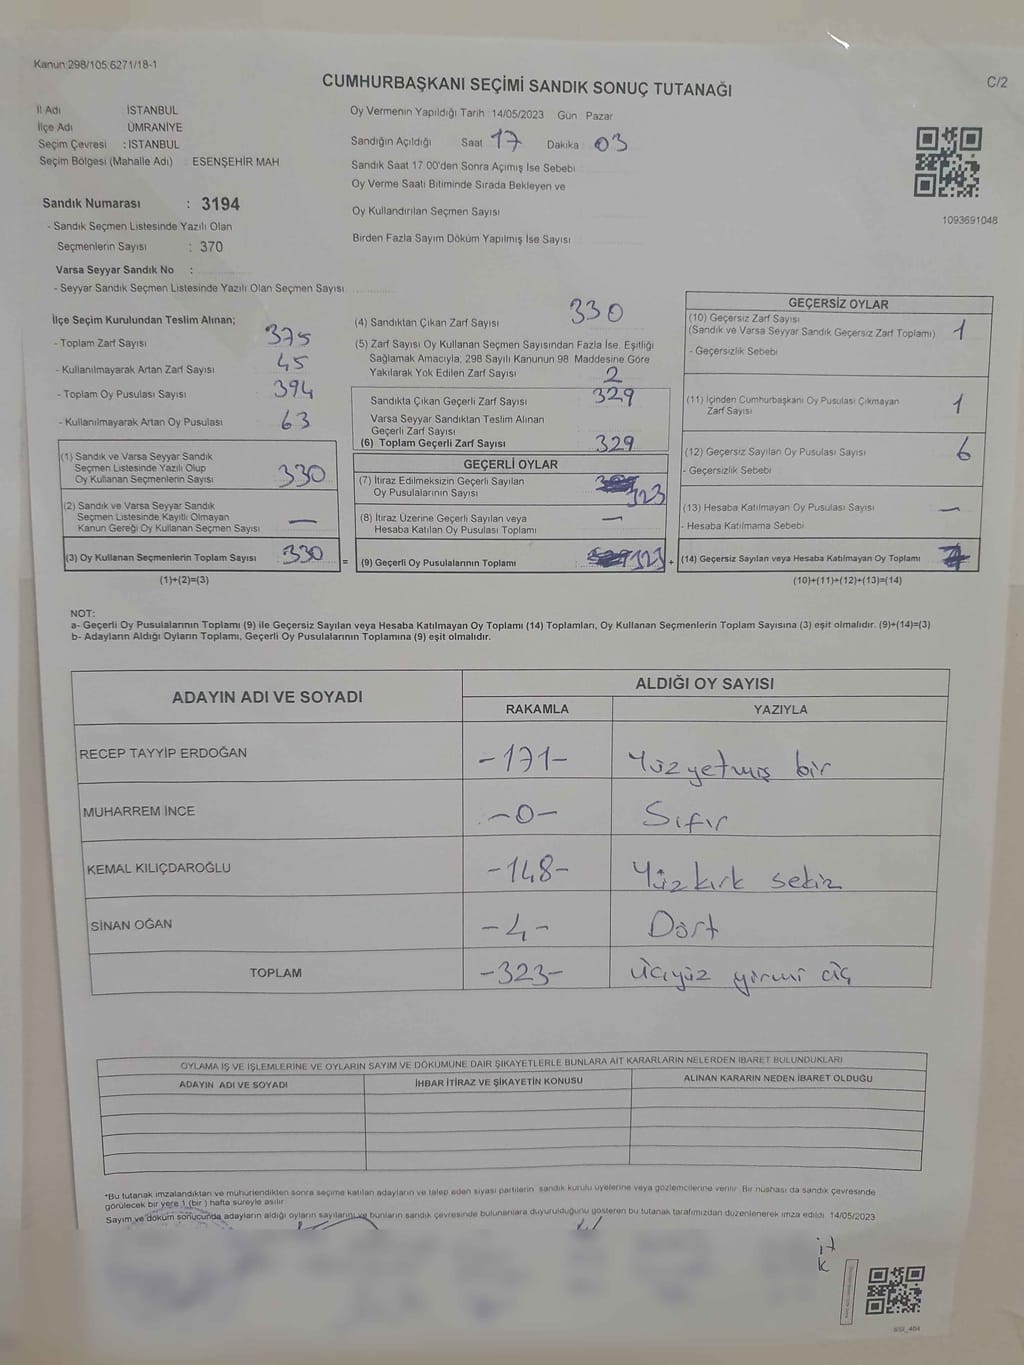 Kanun:298/105 6271/18-1
CUMHURBAŞKANI SEÇİMİ SANDIK SONUÇ TUTANAĞI
C/2
İl Adı İSTANBUL
İlçe Adı ÜMRANİYE
Seçim Çevresi : İSTANBUL
Seçim Bölgesi (Mahalle Adı) : ESENŞEHİR MAH
Oy Vermenin Yapıldığı Tarih 14/05/2023 Gün Pazar
Sandığın Açıldığı Saat 17 Dakika : 03
Sandık Saat 17.00'den Sonra Açılmış İse Sebebi
Oy Verme Saati Bitiminde Sırada Bekleyen ve
Oy Kullandırılan Seçmen Sayısı
Birden Fazla Sayım Döküm Yapılmış İse Sayısı
1093691048
Sandık Numarası : 3194
- Sandık Seçmen Listesinde Yazılı Olan
Seçmenlerin Sayısı : 370
Varsa Seyyar Sandık No :
- Seyyar Sandık Seçmen Listesinde Yazılı Olan Seçmen Sayısı
İlçe Seçim Kurulundan Teslim Alınan;
- Toplam Zarf Sayısı 375
- Kullanılmayarak Artan Zarf Sayısı 45
- Toplam Oy Pusulası Sayısı 394
- Kullanılmayarak Artan Oy Pusulası 63
(1) Sandık ve Varsa Seyyar Sandık
Seçmen Listesinde Yazılı Olup
Oy Kullanan Seçmenlerin Sayısı 330
(2) Sandık ve Varsa Seyyar Sandık
Seçmen Listesinde Kayıtlı Olmayan
Kanun Gereği Oy Kullanan Seçmen Sayısı —
(3) Oy Kullanan Seçmenlerin Toplam Sayısı 330 =
(1)+(2)=(3)
(4) Sandıktan Çıkan Zarf Sayısı 330
(5) Zarf Sayısı Oy Kullanan Seçmen Sayısından Fazla İse, Eşitliği
Sağlamak Amacıyla, 298 Sayılı Kanunun 98. Maddesine Göre
Yakılarak Yok Edilen Zarf Sayısı 2
Sandıkta Çıkan Geçerli Zarf Sayısı 329
Varsa Seyyar Sandıktan Teslim Alınan
Geçerli Zarf Sayısı
(6) Toplam Geçerli Zarf Sayısı 329
GEÇERLİ OYLAR
(7) İtiraz Edilmeksizin Geçerli Sayılan
Oy Pusulalarının Sayısı 323
(8) İtiraz Üzerine Geçerli Sayılan veya
Hesaba Katılan Oy Pusulası Toplamı —
(9) Geçerli Oy Pusulalarının Toplamı : 323 +
GEÇERSİZ OYLAR
(10) Geçersiz Zarf Sayısı
(Sandık ve Varsa Seyyar Sandık Geçersiz Zarf Toplamı) 1
- Geçersizlik Sebebi
(11) İçinden Cumhurbaşkanı Oy Pusulası Çıkmayan
Zarf Sayısı 1
(12) Geçersiz Sayılan Oy Pusulası Sayısı 6
- Geçersizlik Sebebi
(13) Hesaba Katılmayan Oy Pusulası Sayısı —
- Hesaba Katılmama Sebebi
(14) Geçersiz Sayılan veya Hesaba Katılmayan Oy Toplamı
(10)+(11)+(12)+(13)=(14)
NOT:
a- Geçerli Oy Pusulalarının Toplamı (9) ile Geçersiz Sayılan veya Hesaba Katılmayan Oy Toplamı (14) Toplamları, Oy Kullanan Seçmenlerin Toplam Sayısına (3) eşit olmalıdır. (9)+(14)=(3)
b- Adayların Aldığı Oyların Toplamı, Geçerli Oy Pusulalarının Toplamına (9) eşit olmalıdır.
ADAYIN ADI VE SOYADI ALDIĞI OY SAYISI
RAKAMLA YAZIYLA
RECEP TAYYİP ERDOĞAN -171- Yüzyetmiş bir
MUHARREM İNCE -0- Sıfır
KEMAL KILIÇDAROĞLU -148- Yüzkırk sekiz
SİNAN OĞAN -4- Dört
TOPLAM -323- üçyüz yirmi üç
OYLAMA İŞ VE İŞLEMLERİNE VE OYLARIN SAYIM VE DÖKÜMÜNE DAİR ŞİKAYETLERLE BUNLARA AİT KARARLARIN NELERDEN İBARET BULUNDUKLARI
ADAYIN ADI VE SOYADI İHBAR İTİRAZ VE ŞİKAYETİN KONUSU ALINAN KARARIN NEDEN İBARET OLDUĞU
*Bu tutanak imzalandıktan ve mühürlendikten sonra seçime katılan adayların ve talep eden siyasi partilerin sandık kurulu üyelerine veya gözlemcilerine verilir. Bir nüshası da sandık çevresinde
görülecek bir yere 1 (bir) hafta süreyle asılır.
Sayım ve döküm sonucunda adayların aldığı oyların sayılarını ve bunların sandık çevresinde bulunanlara duyurulduğunu gösteren bu tutanak tarafımızdan düzenlenerek imza edildi. 14/05/2023